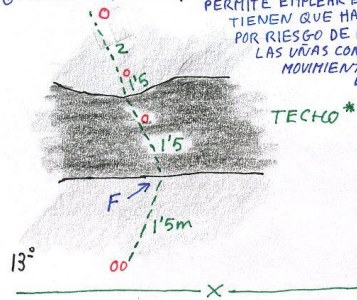 PERMITE EMPLEAR
TIENEN QUE
POR RIESGO DE
LAS UÑAS
MOVIMIENT
2
1'5
TECHO*
1'5
F
1'5m
13º
X